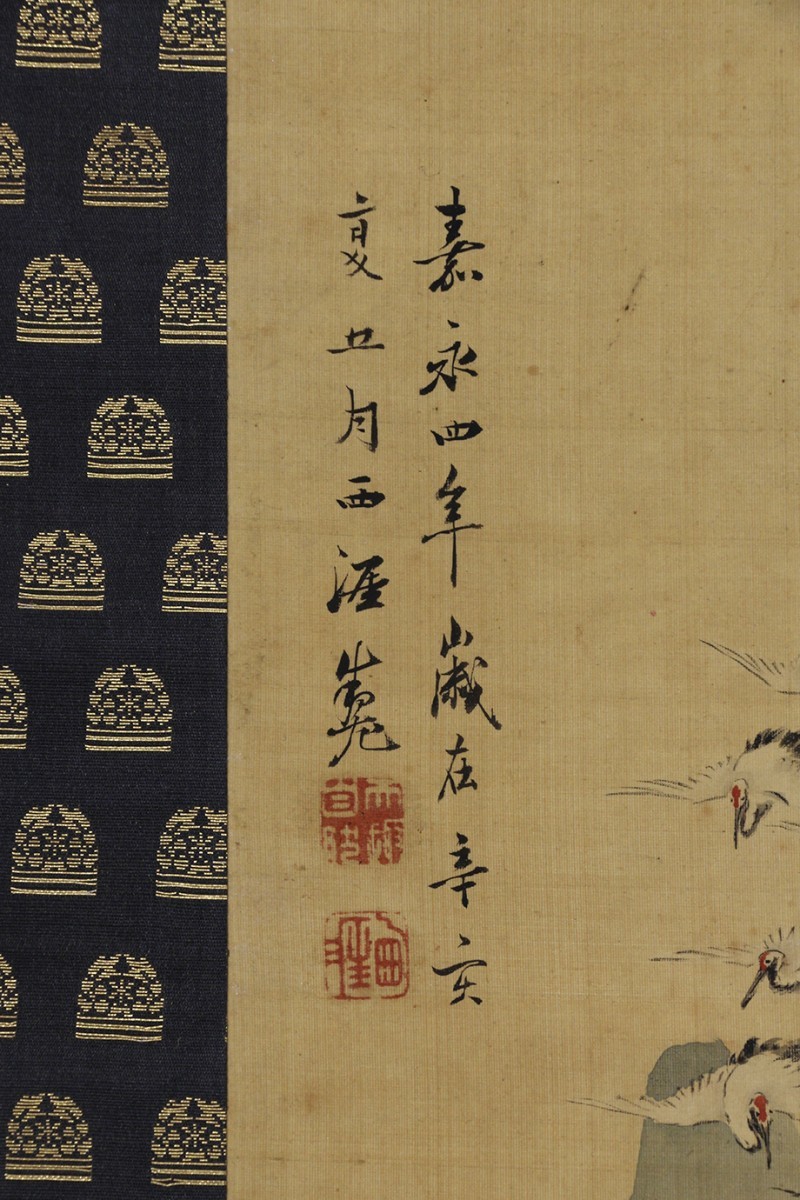 嘉永四年歳在辛亥
夏五月西涯
西涯